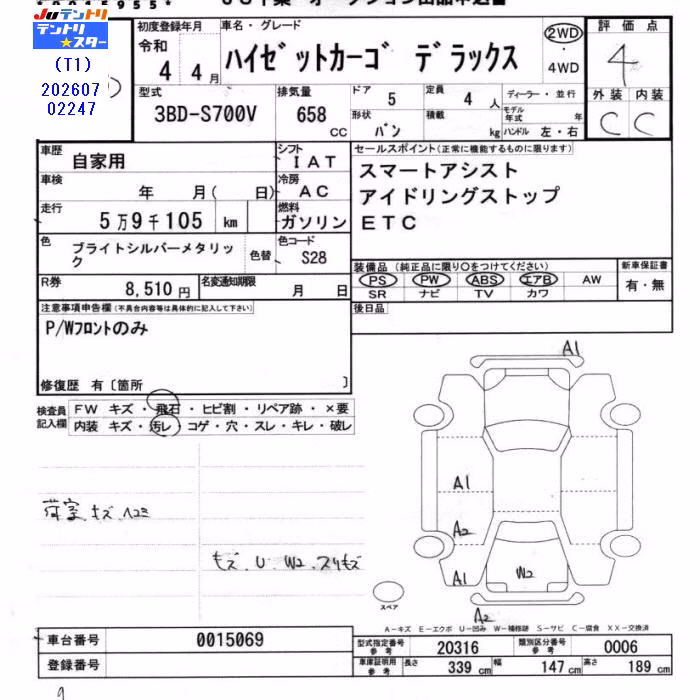 Juテントリ
テントリ★スター
(T1)
202607
02247
初度登録年月
令和
4 4月
車名・グレード
ハイゼットカーゴ デラックス
2WD
・
4WD
評価点
4
外装 内装
C C
型式
3BD-S700V
排気量
658
CC
ドア 5
定員 4 人
ディーラー・並行
形状 バン
積載 kg
モデル年式 年
ハンドル 左・右
車歴
自家用
シフト
IAT
車検
年 月( 日)
冷房
AC
走行
5万9千105 km
燃料
ガソリン
色
ブライトシルバーメタリック
色替
色コード
S28
R券
8,510 円
名変通知期限
月 日
セールスポイント(正常に機能するものに限ります)
スマートアシスト
アイドリングストップ
ETC
装備品 (純正品に限り○をつけてください)
PS PW ABS エアB AW
SR ナビ TV カワ
新車保証書
有・無
後日品
注意事項申告欄(不具合内容等は具体的に記入して下さい)
P/Wフロントのみ
修復歴 有〔箇所 〕
検査員記入欄
FW キズ・飛石・ヒビ割・リペア跡・×要
内装 キズ・汚レ・コゲ・穴・スレ・キレ・破レ
荷室キズ ヘコミ
キズ.U.W2.スリキズ
A1
A1
A2
A1
W2
A2
スペア
A-キズ E-エクボ U-凹み W-補修跡 S-サビ C-腐食 XX-交換済
車台番号
0015069
登録番号
型式指定番号
参考
20316
類別区分番号
参考
0006
車庫証明用
参考
長さ 339 cm
幅 147 cm
高さ 189 cm